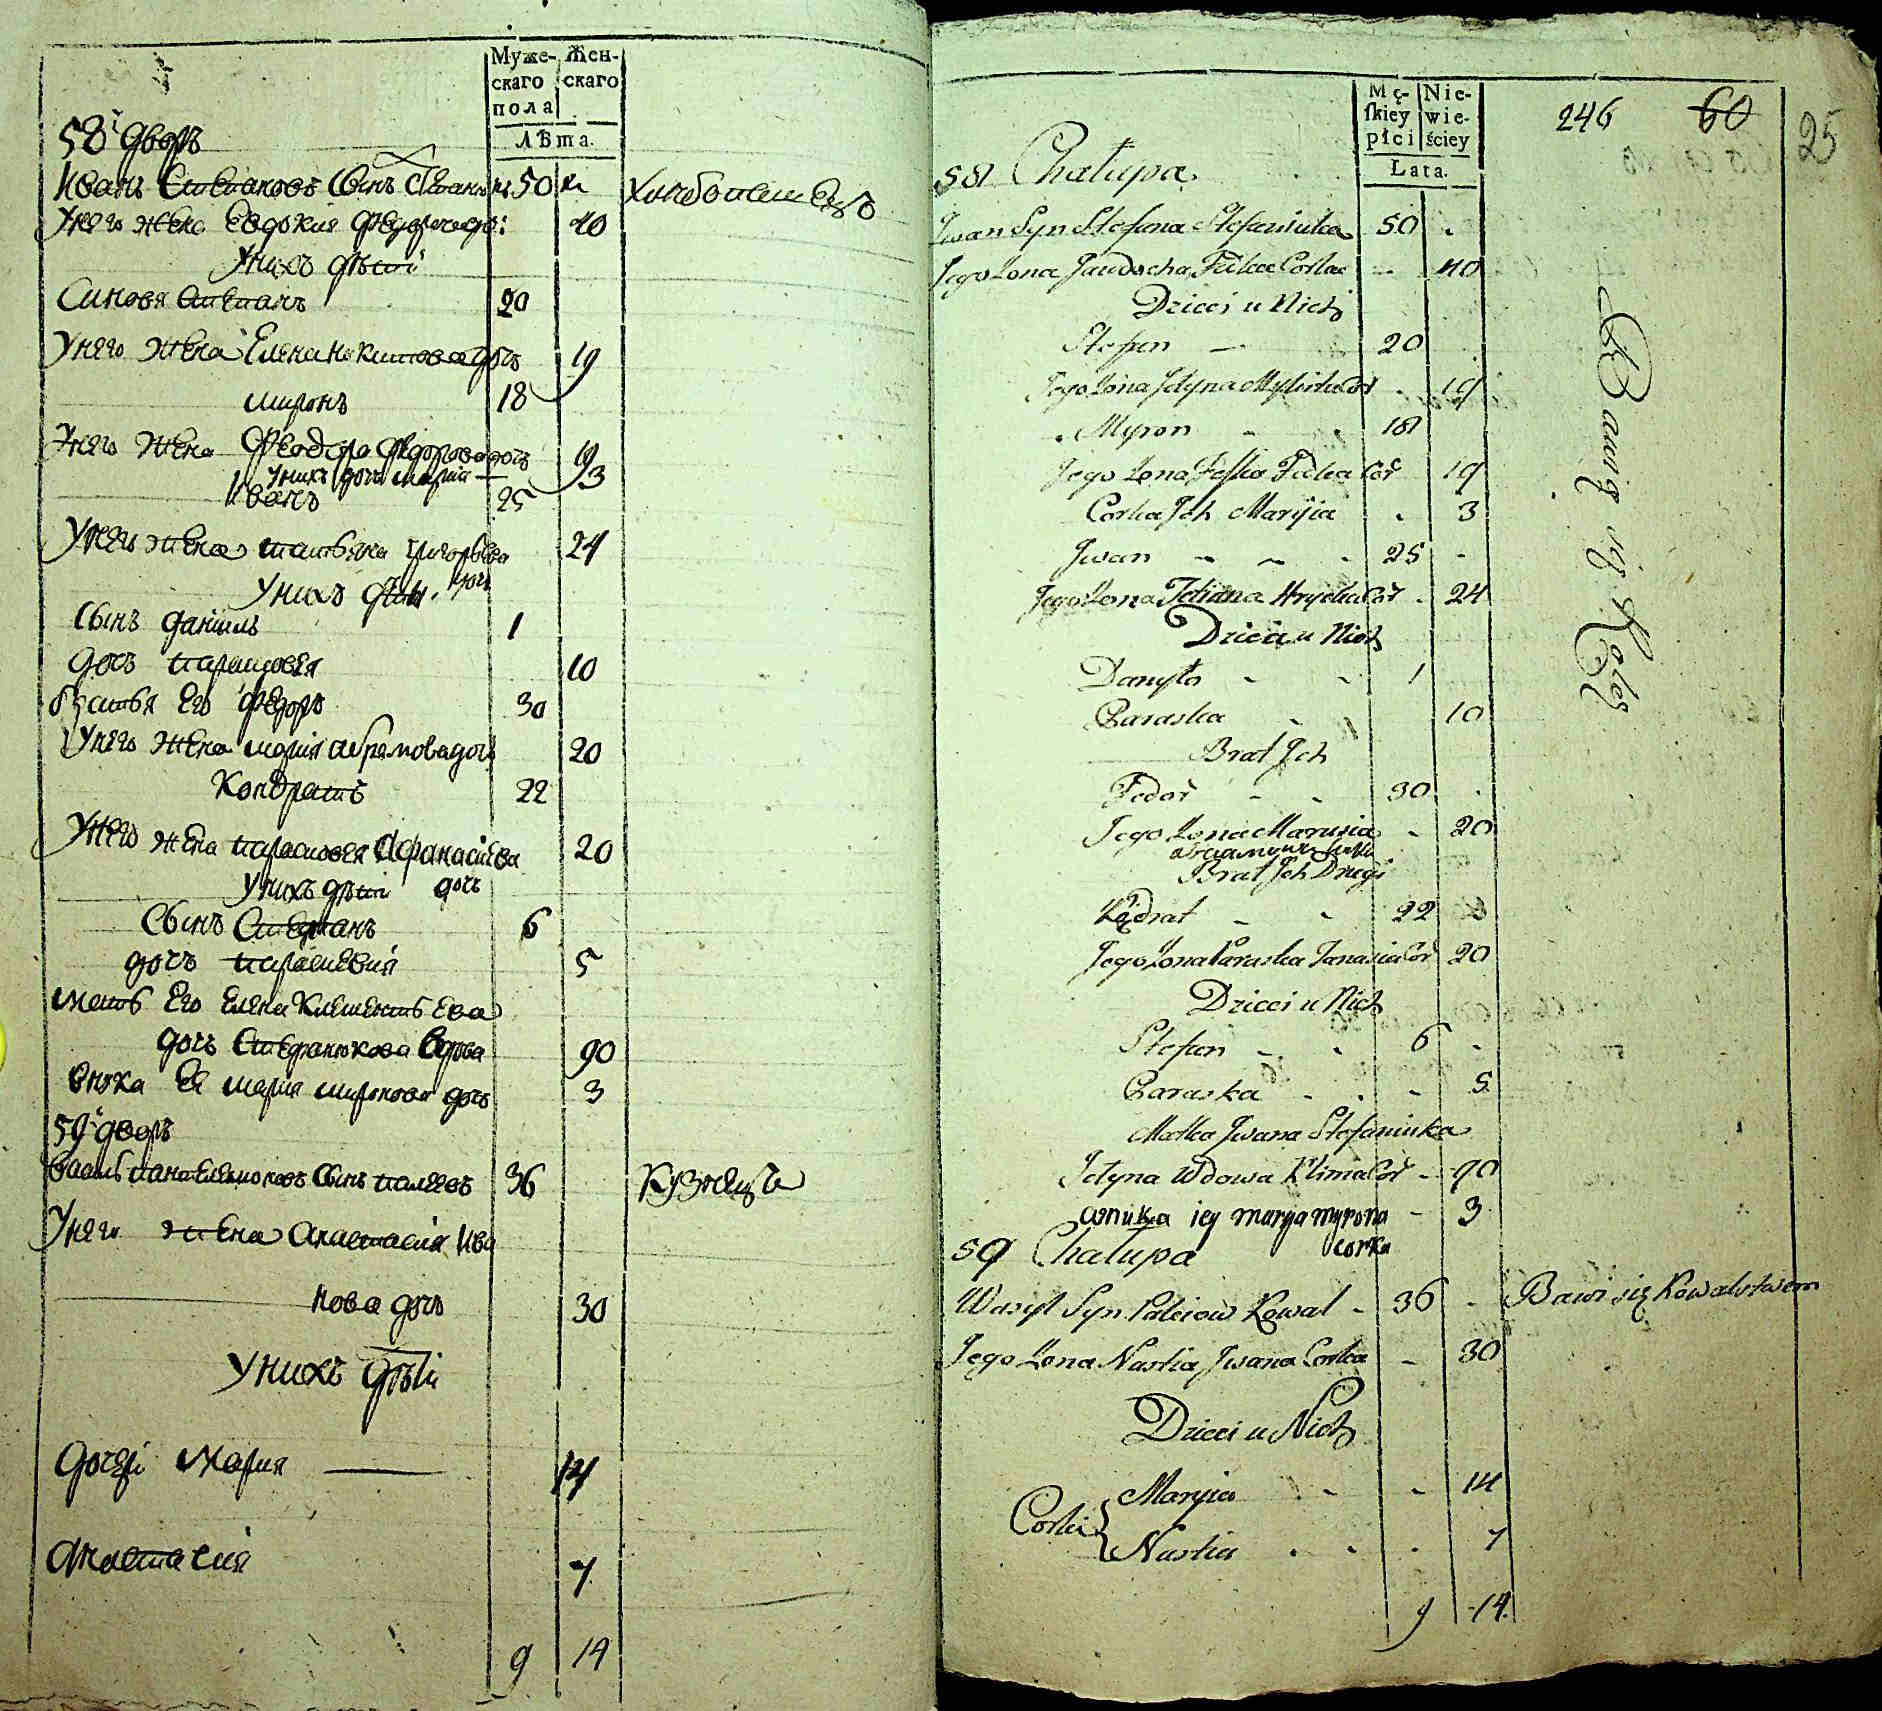 Муже-
скаго
пола
Жен-
скаго
Лѣта.
58й дворъ
Иванъ Степановъ Сынъ 50
хлѣбопашецъ
У него жена Евдокия Федорова до: 40
У нихъ дѣти
Синовя Степанъ 20
У него жена Елена Никитова дочь 19
миронъ 18
У него жена Феодора Федорова дочь 19
У нихъ дочь мария — 3
Иванъ 25
У него жена татьяна григорьева 24
У нихъ дѣти дочь
Сынъ данiилъ 1
дочь парасковея 10
братья Его федоръ 30
У него жена мария абрамова дочь 20
Кондратъ 22
У него жена парасковея Афанасиева 20
У нихъ дѣти дочь
Сынъ Стефанъ 6
дочь параскевия 5
мать Его Елена Клементьева
дочь Стефанюкова вдова 90
внука Ея мария миронова дочь 3
59й дворъ
василь Сынъ палеевъ 36
Кузнецъ
У него жена Анастасия Ива
нова дочь 30
У нихъ дѣти
дочери Мария — 14
Анастасия 7
9 14
Mę-
ſkiey
płci
Nie-
wie-
ściey
Lata.
246 60 25
58 Chałupa.
Jwan Syn Stefana Stefaniuka 50
Jego Zona Jawdocha Fedka Corka 40
Bawią się Rolą
Dzieci u Nich
Stefan 20
Jego Zona Jełyna Mykita Cor 19
Myron 18
Jego Zona Feśka Fedka Cor 19
Corka Jch Maryia 3
Jwan 25
Jego Zona Tetiana Hryćka Cor 24
Dzieci u Nich
Danyło 1
Paraska 10
Brat Jch
Fedor 30
Jego Zona Marusia 20
abramowa corka
Brat Jch Drugi
Kędrat 22
Jego Zona Paraska Panasia Cor 20
Dzieci u Nich
Stefan 6
Paraska 5
Matka Jwana Stefaniuka
Jełyna Wdowa Klima Cor 90
wnuka iey marya myrona 3
corka
59 Chałupa
Wasyl Syn Paleiow Kowal 36 Bawi się Kowalstwem
Jego Zona Nastia Jwana Corka 30
Dzieci u Nich
Corki { Maryia 14
Nastia 7
9 14